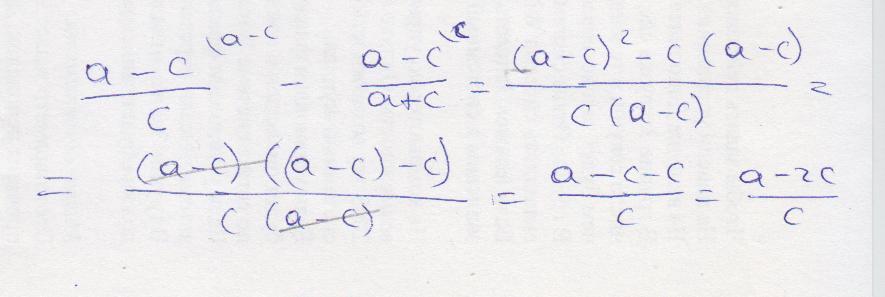 \frac{a-c}{c}^{\a-c} - \frac{a-c}{a+c}^{\c} = \frac{(a-c)^2-c(a-c)}{c(a-c)} =
= \frac{(a-c)((a-c)-c)}{c(a-c)} = \frac{a-c-c}{c} = \frac{a-2c}{c}